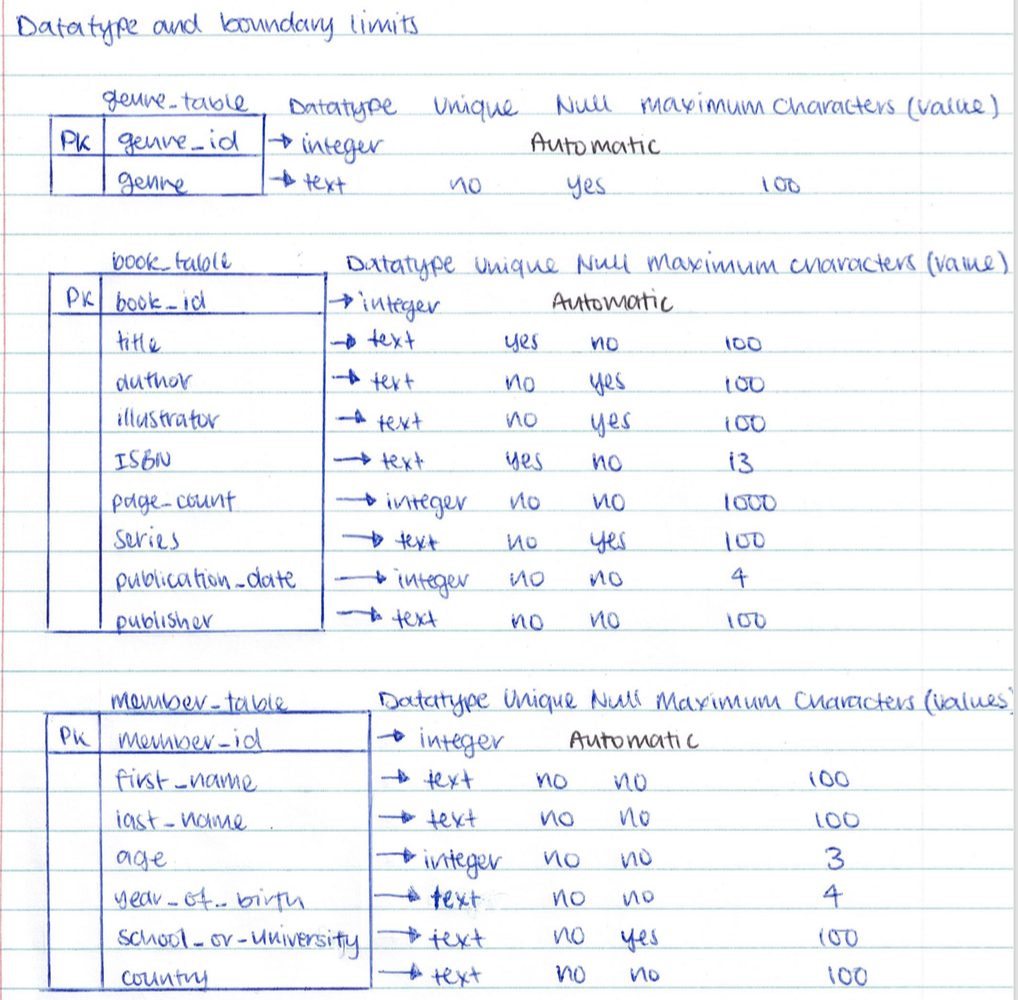 Datatype and boundary limits
genre_table Datatype Unique Null Maximum Characters (value)
PK genre_id → integer Automatic
genre → text no yes 100
book_table Datatype Unique Null Maximum characters (value)
PK book_id → integer Automatic
title → text yes no 100
author → text no yes 100
illustrator → text no yes 100
ISBN → text yes no 13
page_count → integer no no 1000
series → text no yes 100
publication_date → integer no no 4
publisher → text no no 100
member_table Datatype Unique Null Maximum Characters (values)
PK member_id → integer Automatic
first_name → text no no 100
last_name → text no no 100
age → integer no no 3
year_of_birth → text no no 4
school_or_university → text no yes 100
country → text no no 100